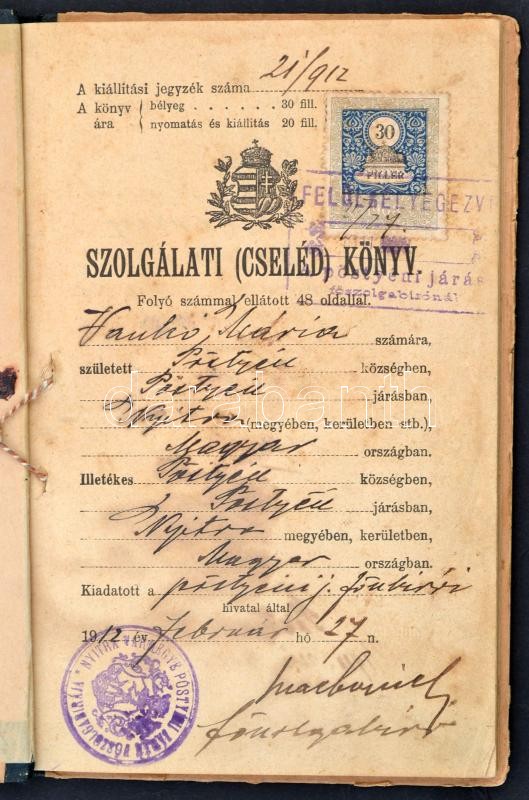 21/912
A kiállítási jegyzék száma
A könyv ára { bélyeg . . . . . . 30 fill.
nyomatás és kiállítás 20 fill.
30
FILLÉR
FELÜLBÉLYEGEZV
pöstyéni járás
főszolgabirónál
SZOLGÁLATI (CSELÉD) KÖNYV.
Folyó számmal ellátott 48 oldallal.
Mária számára,
született Pöstyén községben,
Pöstyén járásban,
Nyitra (megyében, kerületben stb.),
Magyar országban.
Illetékes Pöstyén községben,
Pöstyén járásban,
Nyitra megyében, kerületben,
Magyar országban.
Kiadatott a pöstyéni j. főbirói
hivatal által
1912 év február hó 27 n.
főszolgabiró
NYITRA VÁRMEGYE PÖSTYÉNI JÁRÁS FŐSZOLGABIRÁJA
darabanth